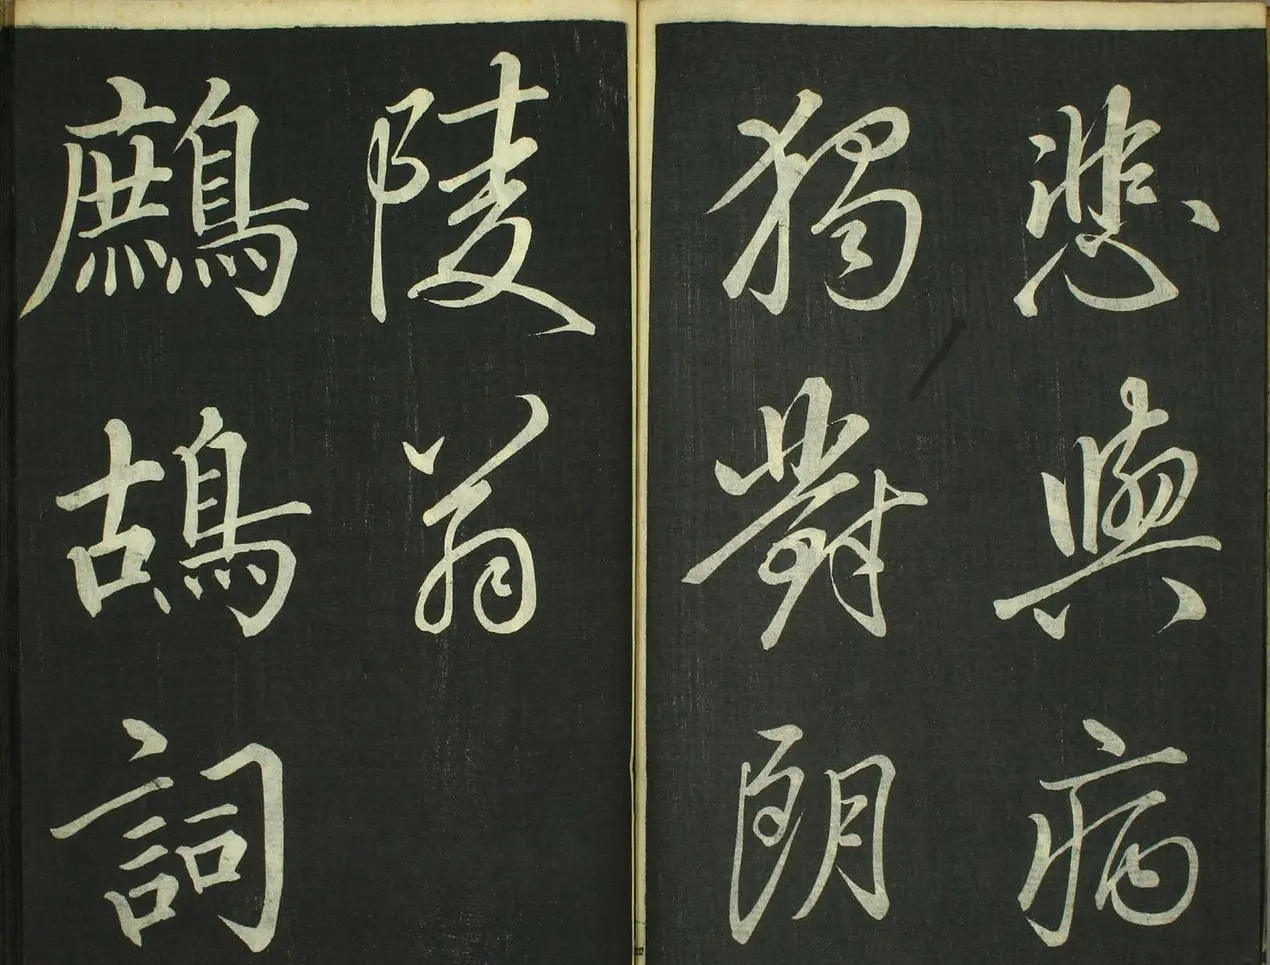 悲與病
獨對朗
陵翁
鷓鴣詞